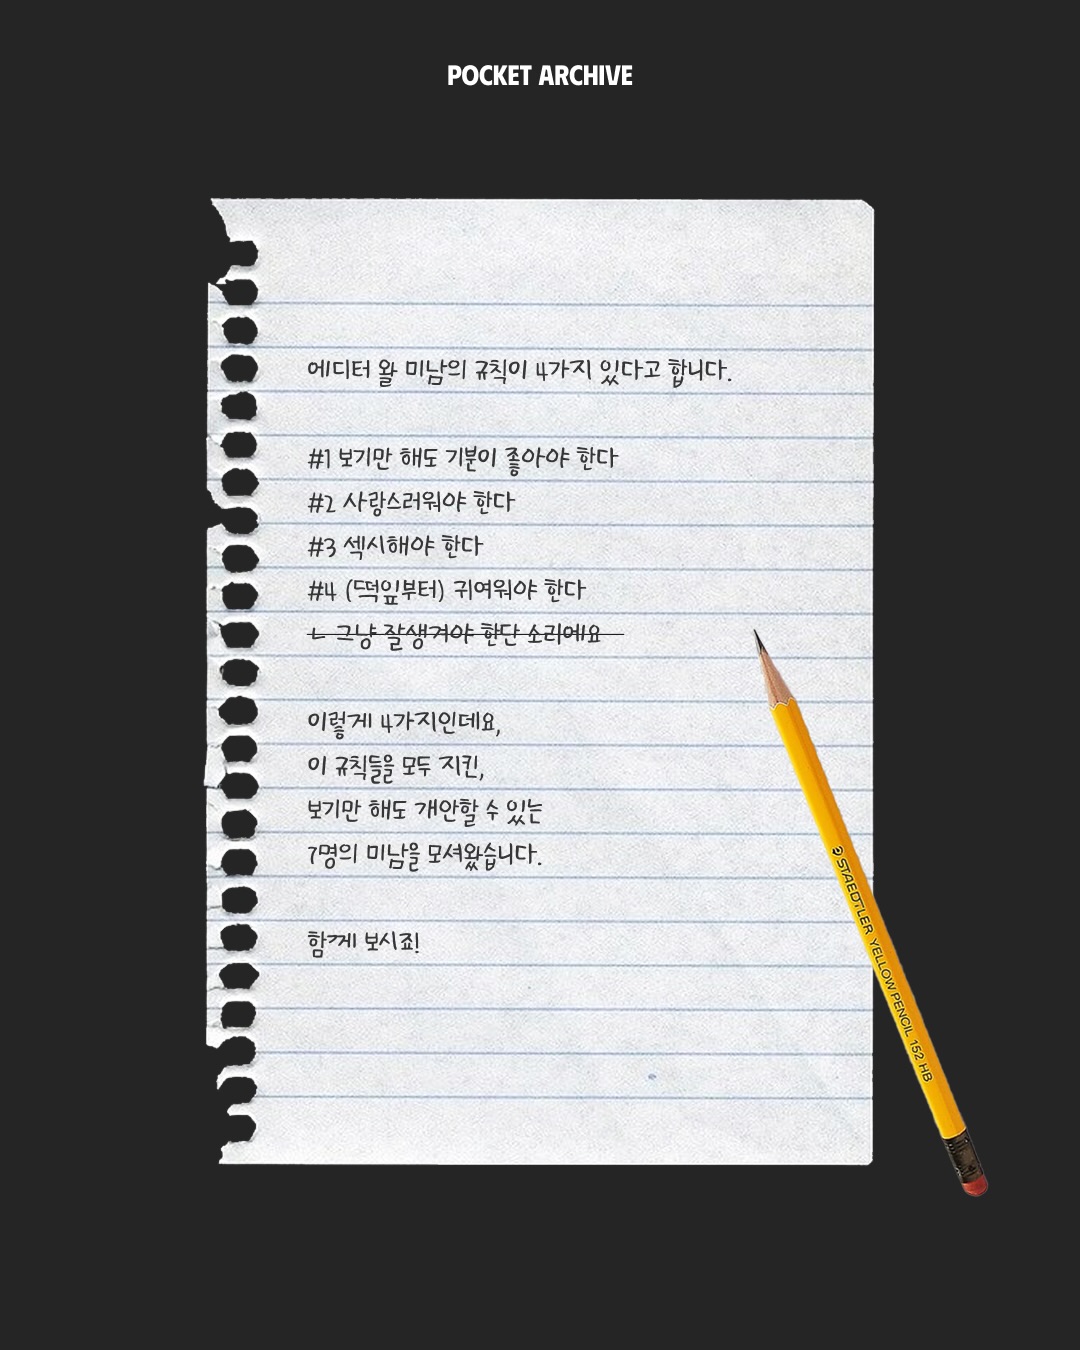 POCKET ARCHIVE
에디터 왈 미남의 규칙이 4가지 있다고 합니다.
#1 보기만 해도 기분이 좋아야 한다
#2 사랑스러워야 한다
#3 섹시해야 한다
#4 (떡잎부터) 귀여워야 한다
ㄴ 그냥 잘생겨야 한단 소리에요
이렇게 4가지인데요,
이 규칙들을 모두 지킨,
보기만 해도 개안할 수 있는
7명의 미남을 모셔왔습니다.
함께 보시죠!
STAEDTLER YELLOW PENCIL 152 HB